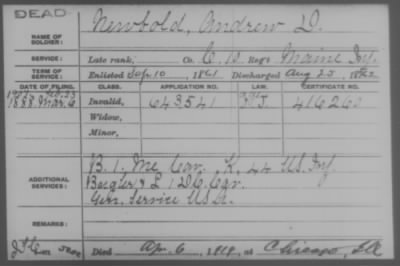 DEAD
NAME OF SOLDIER: Newbold, Andrew D.
SERVICE: Late rank, Co. C, 10 Reg't Maine Inf.
TERM OF SERVICE: Enlisted 10, 1861 Discharged Aug 25, 1862
DATE OF FILING. CLASS. APPLICATION NO. LAW. CERTIFICATE NO.
1888 Mar. 6 Invalid, 643541 416260
Widow,
Minor,
ADDITIONAL SERVICES: B. 1, Me Cav. K, 44 U.S. Inf
& L 1 D.C. Cav.
Gen. Service U.S.A.
REMARKS:
Died Apr. 6, 1919, at Chicago, Ill